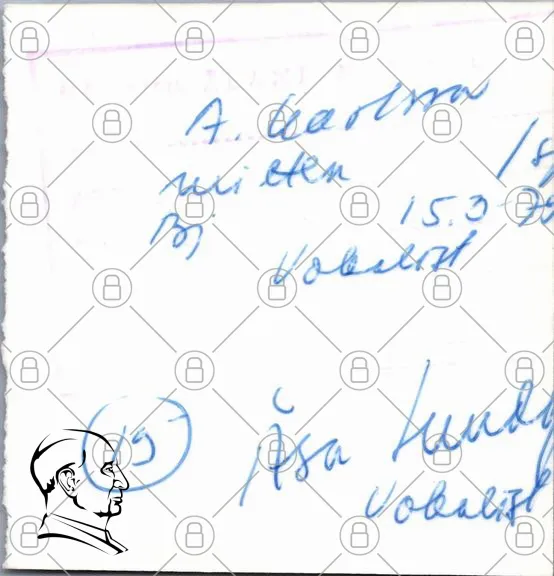 A. Karlsson
mitten
15.3
Vokalist
19
Åsa Lund
Vokalist